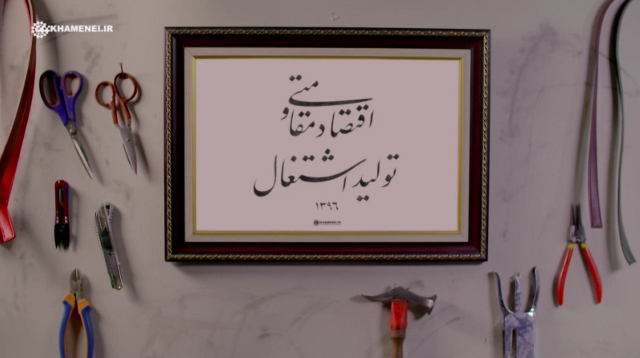 KHAMENEI.IR
اقتصاد مقاومتی
تولید اشتغال
۱۳۹۶
KHAMENEI.IR